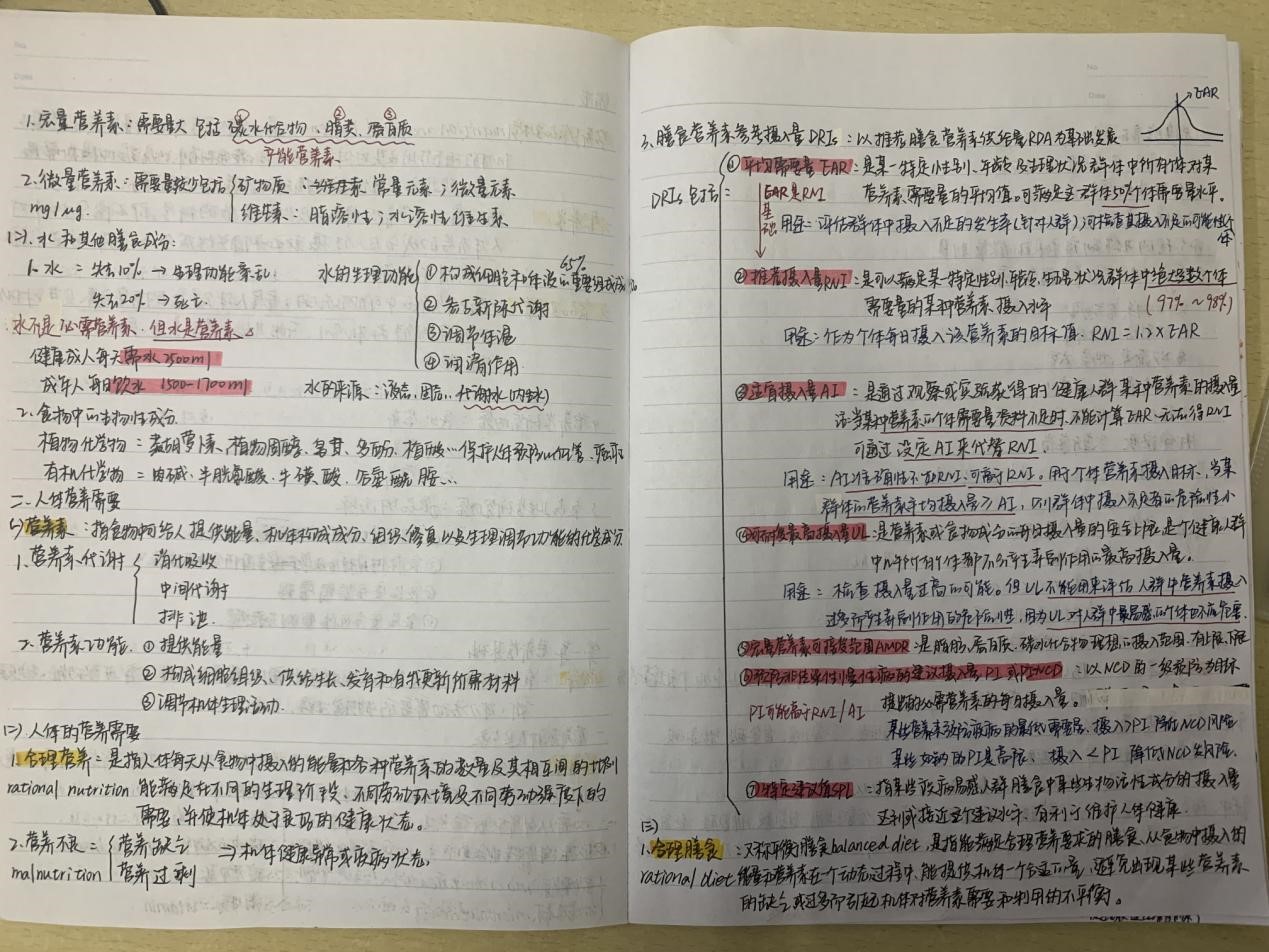 1. 宏量营养素：需要量大 包括 ①碳水化合物、②脂类、③蛋白质
产能营养素
2. 微量营养素：需要量较少包括 矿物质：常量元素；微量元素
mg/μg. 维生素：脂溶性；水溶性维生素
(二). 水和其他膳食成分：
1. 水 = 失去10% → 生理功能紊乱 水的生理功能 ① 构成细胞和体液的重要组成成分 65%
失去20% → 死亡. ② 参与新陈代谢
水不是必需营养素. 但水是营养素。 ③ 调节体温
健康成人每天需水2500ml ④ 润滑作用
成年人每日饮水 1500-1700ml 水的来源：液态, 固态, 代谢水(内生水)
2. 食物中的生物性成分.
植物化学物 = 类胡萝卜素, 植物固醇, 皂苷, 多酚, 植酸…保护人体 预防心血管
有机化学物 = 肉碱、半胱氨酸、牛磺酸、胺…
二. 人体营养需要
(一) 营养素：指食物中给人提供能量、机体构成成分、组织修复以及生理调节功能的化学成分.
1. 营养素代谢 消化吸收
中间代谢
排泄.
2. 营养素功能. ① 提供能量
② 构成细胞组织、供给生长、发育和自我更新所需材料
③ 调节机体生理活动.
(二). 人体的营养需要
1. 合理营养：是指人体每天从食物中摄入的能量和各种营养素的数量及其相互间的比例
rational nutrition 能满足在不同的生理阶段、不同劳动环境及不同劳动强度下的
需要, 并使机体处于良好的健康状态。
2. 营养不良 = 营养缺乏 ⇒ 机体健康异常或疾病状态,
malnutrition 营养过剩
EAR
3. 膳食营养素参考摄入量DRIs：以推荐膳食营养素供给量RDA为基础发展
DRIs包括： ① 平均需要量EAR：是某一特定性别、年龄及生理状况群体中所有个体对某
EAR是RNI基础 营养素需要量的平均值。可满足这一群体50%个体需要量水平.
用途：评估群体中摄入不足的发生率(针对人群)；可检查其摄入不足的可能性个体
② 推荐摄入量RNI：是可以满足某一特定性别、年龄、生理状况群体中绝大多数个体
需要量的某种营养素摄入水平 (97%~98%)
用途：作为个体每日摄入该营养素的目标值. RNI=1.2×EAR
③ 适宜摄入量AI：是通过观察或实验获得的健康人群某种营养素的摄入量
注：当某种营养素的个体需要量资料不足时, 不能计算EAR, 无法得RNI
可通过设定AI来代替RNI.
用途：AI准确性不如RNI, 可高于RNI。用于个体营养素摄入目标, 当某
群体的营养素平均摄入量≥AI, 则群体中摄入不足者的危险性小
④ 可耐受最高摄入量UL：是营养素或食物成分的每日摄入量的安全上限, 是一个健康人群
中几乎所有个体都不会产生毒副作用的最高摄入量。
用途：检查摄入量过高的可能。但UL不能用来评估人群中营养素摄入
过多所产生毒副作用的危险性, 因为UL对人群中最易感的个体也不应危害.
⑤ 宏量营养素可接受范围AMDR：是脂肪、蛋白质、碳水化合物理想的摄入范围, 有上限、下限
⑥ 预防非传染性慢性病的建议摄入量PI或PI-NCD：以NCD的一级预防为目标
PI可能高于RNI/AI 提出的必需营养素的每日摄入量。
某些营养素 摄入>PI 降低NCD风险
某些 的PI是高限, 摄入<PI 降低NCD发风险.
⑦ 特定建议值SPL：指某些疾病易感人群膳食中某些生物活性成分的摄入量
达到或接近这个建议水平, 有利于维护人体健康.
(三)
1. 合理膳食：又称平衡膳食balanced diet, 是指能满足合理营养要求的膳食, 从食物中摄入的
rational diet 能量和营养素在一个动态过程中, 能提供机体一个合适的量, 避免出现某些营养素
的缺乏或过多而引起机体对营养素需要和利用的不平衡。